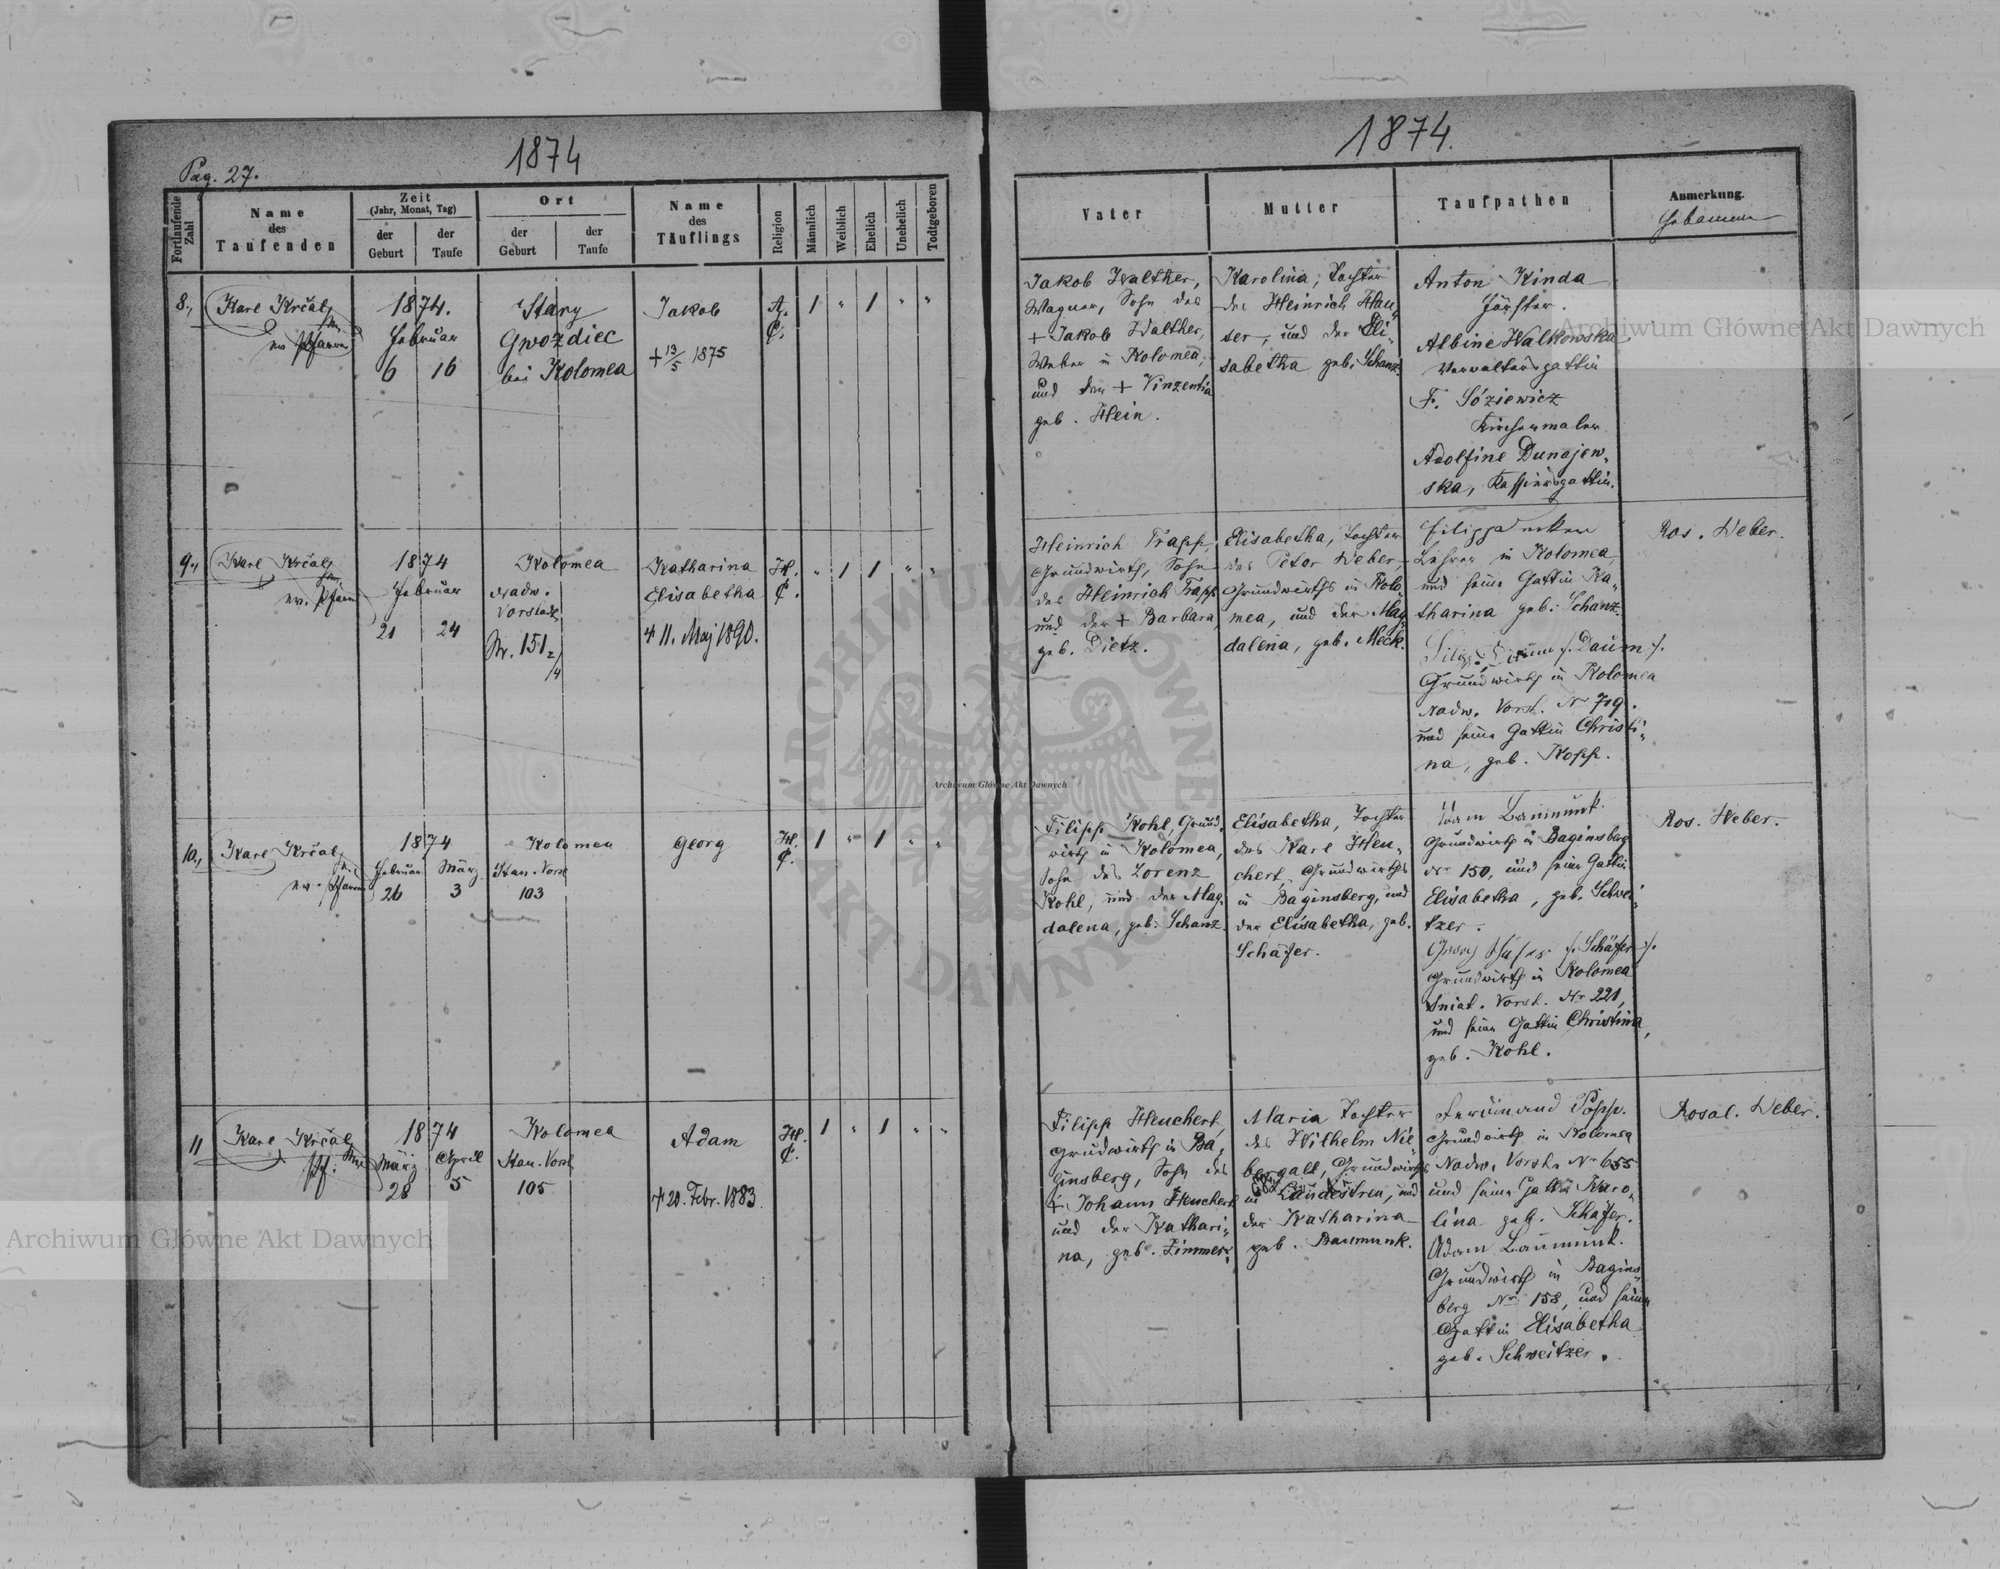 Pag. 27.
1874
1874.
Fortlaufende Zahl
Name
des
Taufenden
Zeit
(Jahr, Monat, Tag)
der
Geburt
der
Taufe
Ort
der
Geburt
der
Taufe
Name
des
Täuflings
Religion
Männlich
Weiblich
Ehelich
Unehelich
Todtgeboren
Vater
Mutter
Taufpathen
Anmerkung.
Hebamme
8.,
Karl Krčal
ev. Pfarrer
1874.
Februar
6 16
Stary
Gwoździec
bei Kolomea
Jakob
+ 13/5 1875
A.
C.
1 " 1 " "
Jakob Walther,
Wagner, Sohn des
+ Jakob Walther,
Weber in Kolomea,
und der + Vinzentia
geb. Hein.
Karolina, Tochter
des Heinrich Hau-
ser, und der Eli-
sabetha geb. Schanz.
Anton Kinda
Förster.
Albine Walkowska
Verwaltersgattin
F. Sóziewicz
Kirchenmaler
Adolfine Dunajew-
ska, Kassiersgattin.
9.,
Karl Krčal
ev. Pfarrer
1874
Februar
21 24
Kolomea
Nadw.
Vorstadt
Nr. 151 2/4
Katharina
Elisabetha
+ 11. Maj 1890.
H.
C.
" 1 1 " "
Heinrich Trapp,
Grundwirth, Sohn
des Heinrich Trapp
und der + Barbara,
geb. Dietz.
Elisabetha, Tochter
des Peter Weber,
Grundwirths in Kolo-
mea, und der Mag-
dalena, geb. Meck.
Filipp
Lehrer in Kolomea,
und seine Gattin Ka-
tharina geb. Schanz.
/. Daum /.
Grundwirth in Kolomea
Nadw. Vorst. Nr 719.
und seine Gattin Christi-
na, geb. Kopp.
Ros. Weber.
10.,
Karl Krčal
ev. Pfarrer
1874
Februar März
26 3
Kolomea
Stan. Vorst
103
Georg
H.
C.
1 " 1 " "
Filipp Kohl, Grund-
wirth in Kolomea,
Sohn des Lorenz
Kohl, und der Mag-
dalena, geb. Schanz.
Elisabetha, Tochter
des Karl Heu-
chert, Grundwirths
in Baginsberg, und
der Elisabetha, geb.
Schäfer.
Adam Baumunk.
Grundwirth in Baginsberg
Nr 150, und seine Gattin
Elisabetha, geb. Schwei-
tzer.
Georg /. Schäfer /.
Grundwirth in Kolomea
Sniat. Vorst. Nr 221,
und seine Gattin Christina,
geb. Kohl.
Ros. Weber.
11
Karl Krčal
Pf.
1874
März April
28 5
Kolomea
Stan. Vorst
105
Adam
+ 20. Febr. 1883.
H.
C.
1 " 1 " "
Filipp Heuchert,
Grudwirth in Ba-
ginsberg, Sohn des
+ Johann Heuchert
und der Kathari-
na, geb. Zimmer.
Maria Tochter
des Wilhelm Nie-
bergall, Grundwirths
in Landestreu, und
der Katharina
geb. Baumunk.
Ferdinand Popp.
Grundwirth in Kolomea
Nadw. Vorst. Nr 655
und seine Gattin Karo-
lina geb. Schäfer.
Adam Baumunk.
Grundwirth in Bagins-
berg Nr 158, und seine
Gattin Elisabetha
geb. Schweitzer.
Rosal. Weber.
Archiwum Główne Akt Dawnych
Archiwum Główne Akt Dawnych
Archiwum Główne Akt Dawnych
ARCHIWUM GŁÓWNE AKT DAWNYCH